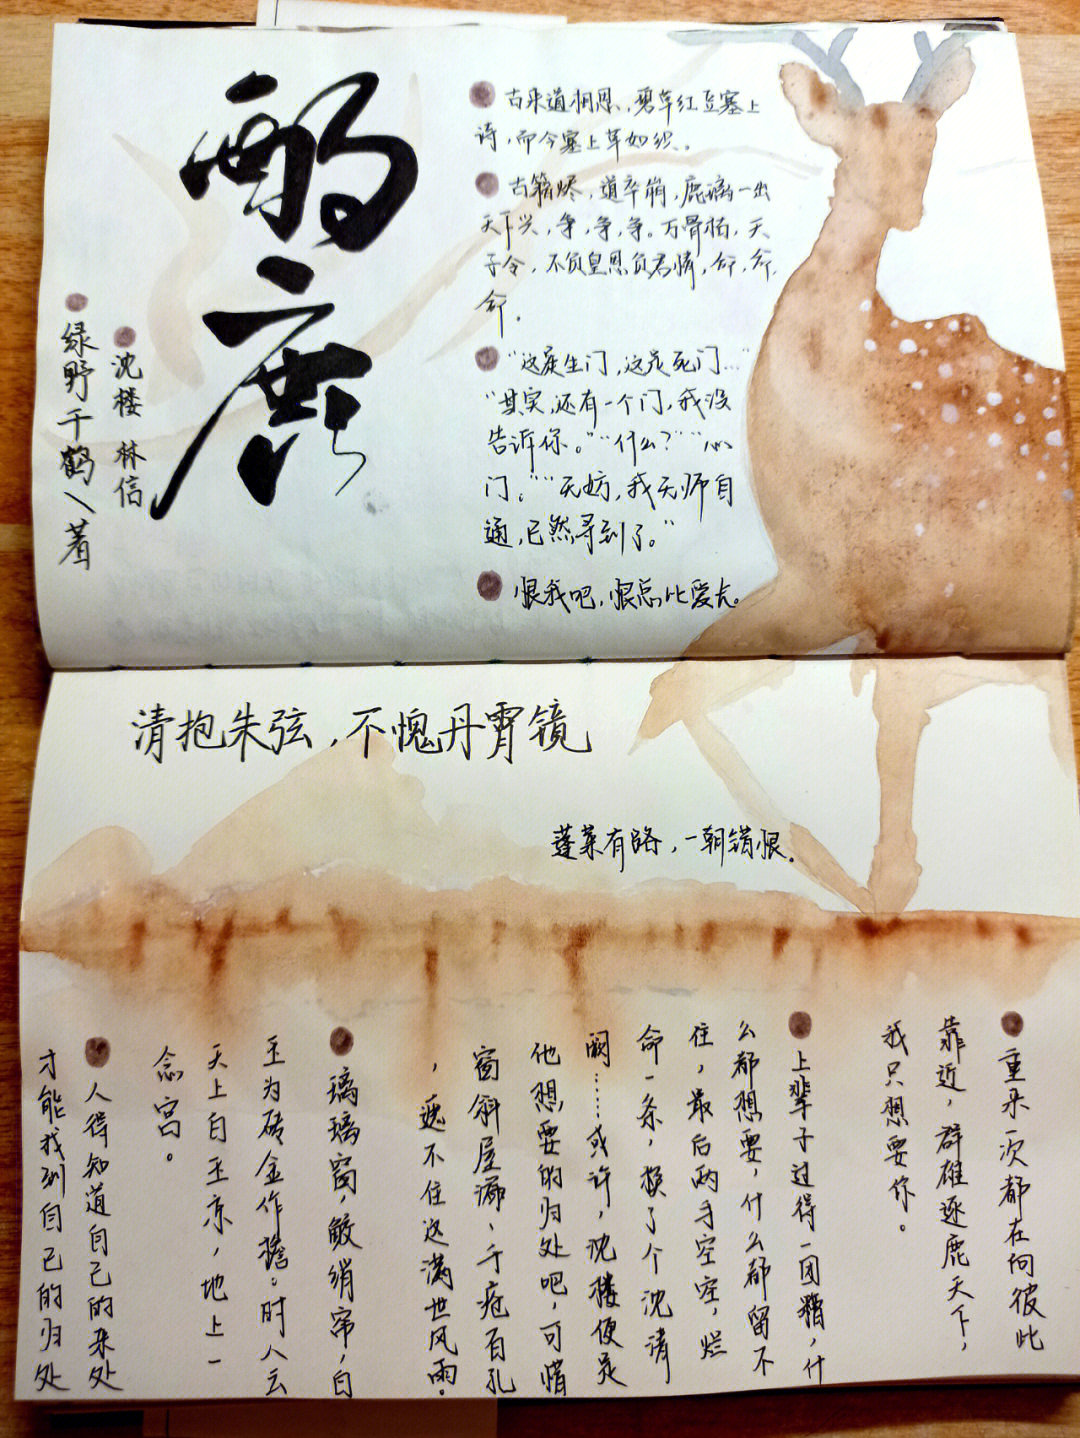 酌鹿
沈楼 林信
绿野千鹤\著
古来道相思,碧草红豆塞上
诗,而今塞上草如织。
古籍烬,道卒崩,鹿璃一出
天下兴,争,争,争。万骨枯,天
子令,不负皇恩负君情,命,命,
命。
“这是生门,这是死门…”
“其实,还有一个门,我没
告诉你。”“什么?”“心
门。”“无妨,我无师自
通,已然寻到了。”
恨我吧,恨总比爱长。
清抱朱弦,不愧丹霄镜
蓬莱有路,一朝错恨。
重来一次都在向彼此
靠近,群雄逐鹿天下,
我只想要你。
上辈子过得一团糟,什
么都想要,什么都留不
住,最后两手空空,烂
命一条,换了个沈清
阙……或许,沈楼便是
他想要的归处吧,可惜
窗斜屋漏、千疮百孔
,遮不住这满世风雨。
璃璃窗,鲛绡帘,白
玉为砖金作檐。时人云
天上白玉京,地上一
念宫。
人得知道自己的来处
才能找到自己的归处